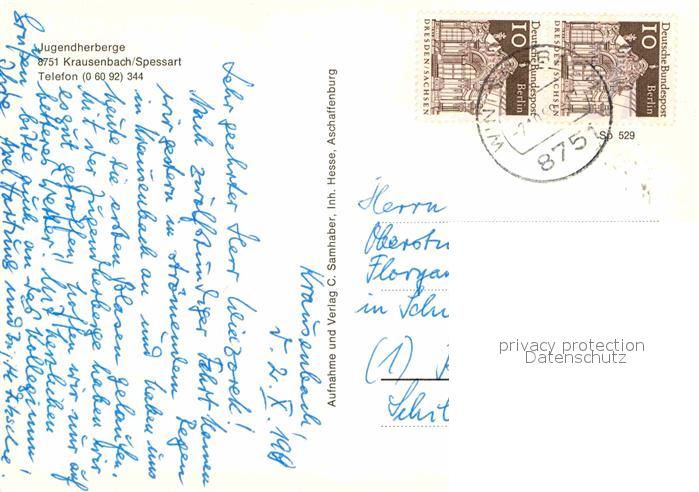 Jugendherberge
8751 Krausenbach/Spessart
Telefon (0 60 92) 344
Krausenbach,
d. 2. X. 198
Sehr geehrter Herr
Nach zwölfstündiger Fahrt kamen
wir gestern in strömendem Regen
in Krausenbach an und haben uns
heute die ersten Blasen gelaufen.
Mit der Jugendherberge haben wir
es gut getroffen, hoffen wir nur auf
besseres Wetter! Mit herzlichen
Grüßen bitte auch an das Kollegium!
Ihre
Aufnahme und Verlag C. Samhaber, Inh. Hesse, Aschaffenburg
10
Deutsche Bundespost
Berlin
DRESDEN/SACHSEN
10
Deutsche Bundespost
Berlin
DRESDEN/SACHSEN
8751
Sp 529
Herrn
Oberstu
Florga
in Schu
(1)
Schil
privacy protection
Datenschutz